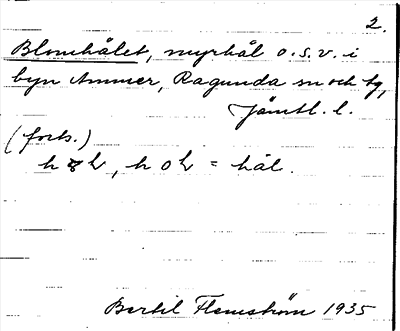 2.
Blomhålet, myrhål o.s.v. i
byn Ammer, Ragunda sn och tg,
Jämtl. l.
(forts.)
h h, h o h = hål.
Bertil Flemström 1935